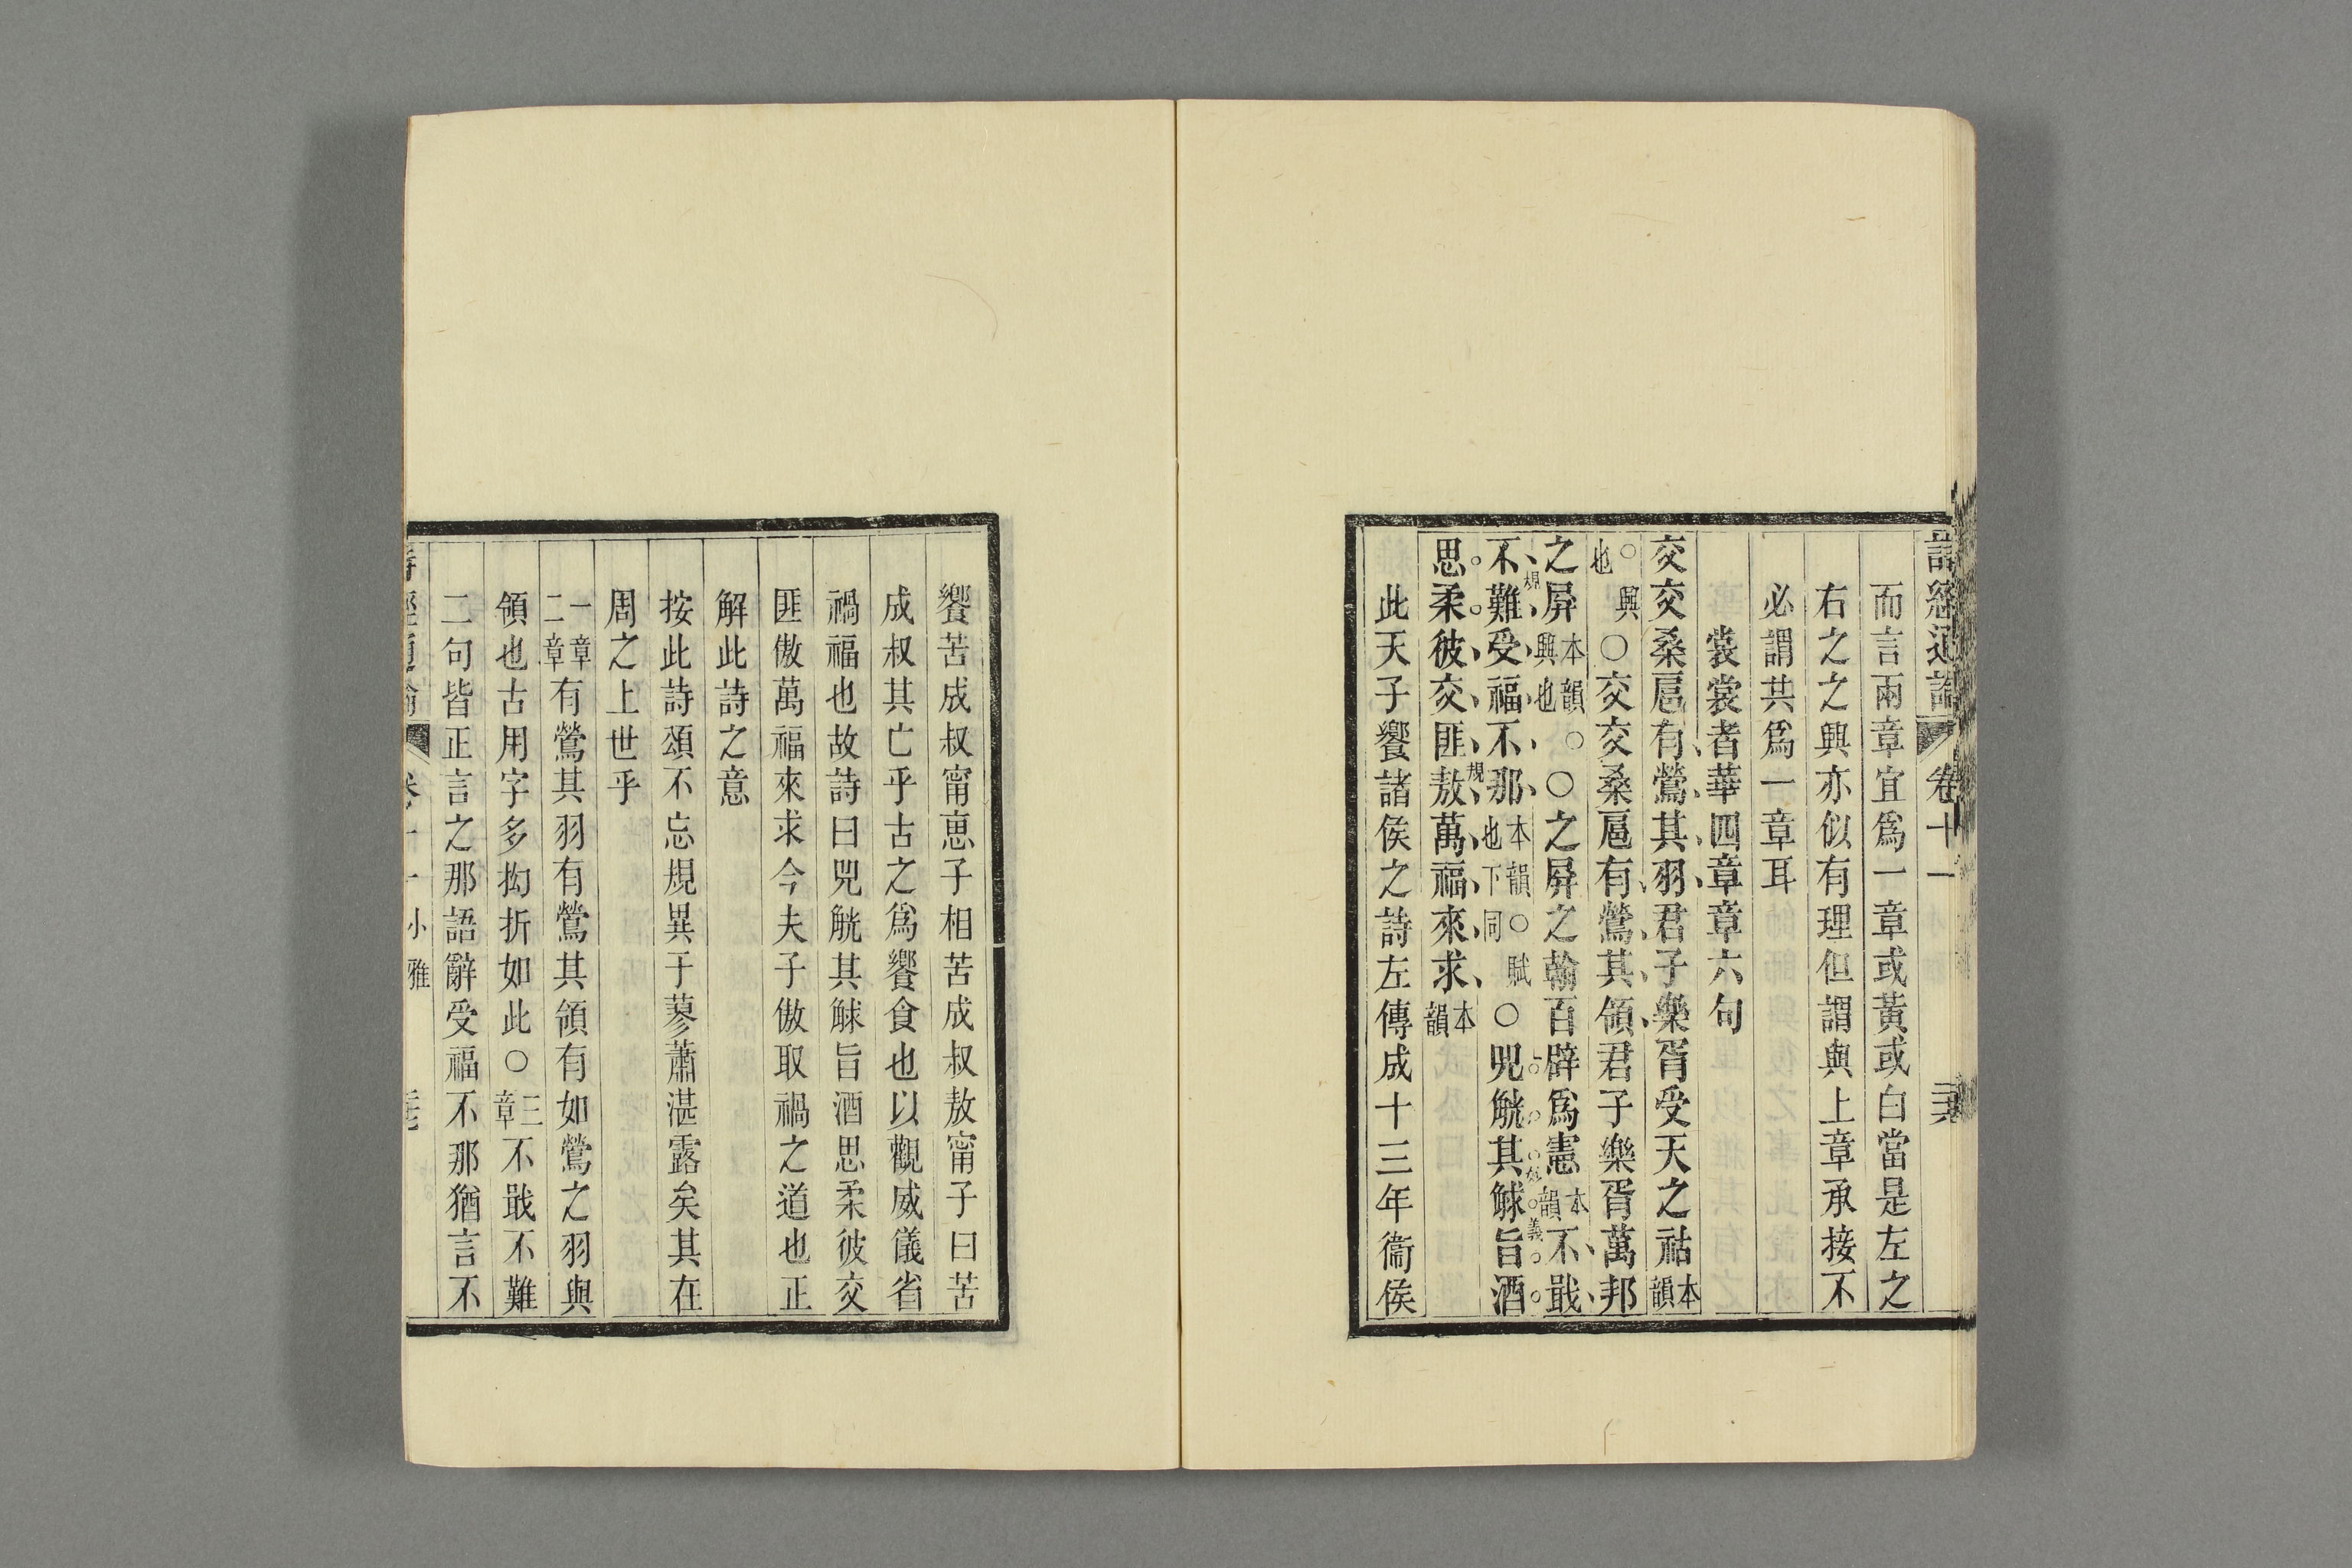 詩經通論 卷十一
而言兩章宜爲一章或黃或白當是左之
右之之興亦似有理但謂與上章承接不
必謂共爲一章耳
裳裳者華四章章六句
交交桑扈有鶯其羽君子樂胥受天之祜本韻
○興也○交交桑扈有鶯其領君子樂胥萬邦
之屛本韻○興也○之屛之翰百辟爲憲本韻不戢
不難受福不那本韻○賦也下同○兕觥其觩旨酒
思柔彼交匪敖萬福來求本韻
此天子饗諸侯之詩左傳成十三年衞侯
饗苦成叔甯惠子相苦成叔敖甯子曰苦
成叔其亡乎古之爲饗食也以觀威儀省
禍福也故詩曰兕觥其觩旨酒思柔彼交
匪傲萬福來求今夫子傲取禍之道也正
解此詩之意
按此詩頌不忘規異于蓼蕭湛露矣其在
周之上世乎
一章二章有鶯其羽有鶯其領有如鶯之羽與
領也古用字多拗折如此○三章不戢不難
二句皆正言之那語辭受福不那猶言不
小雅